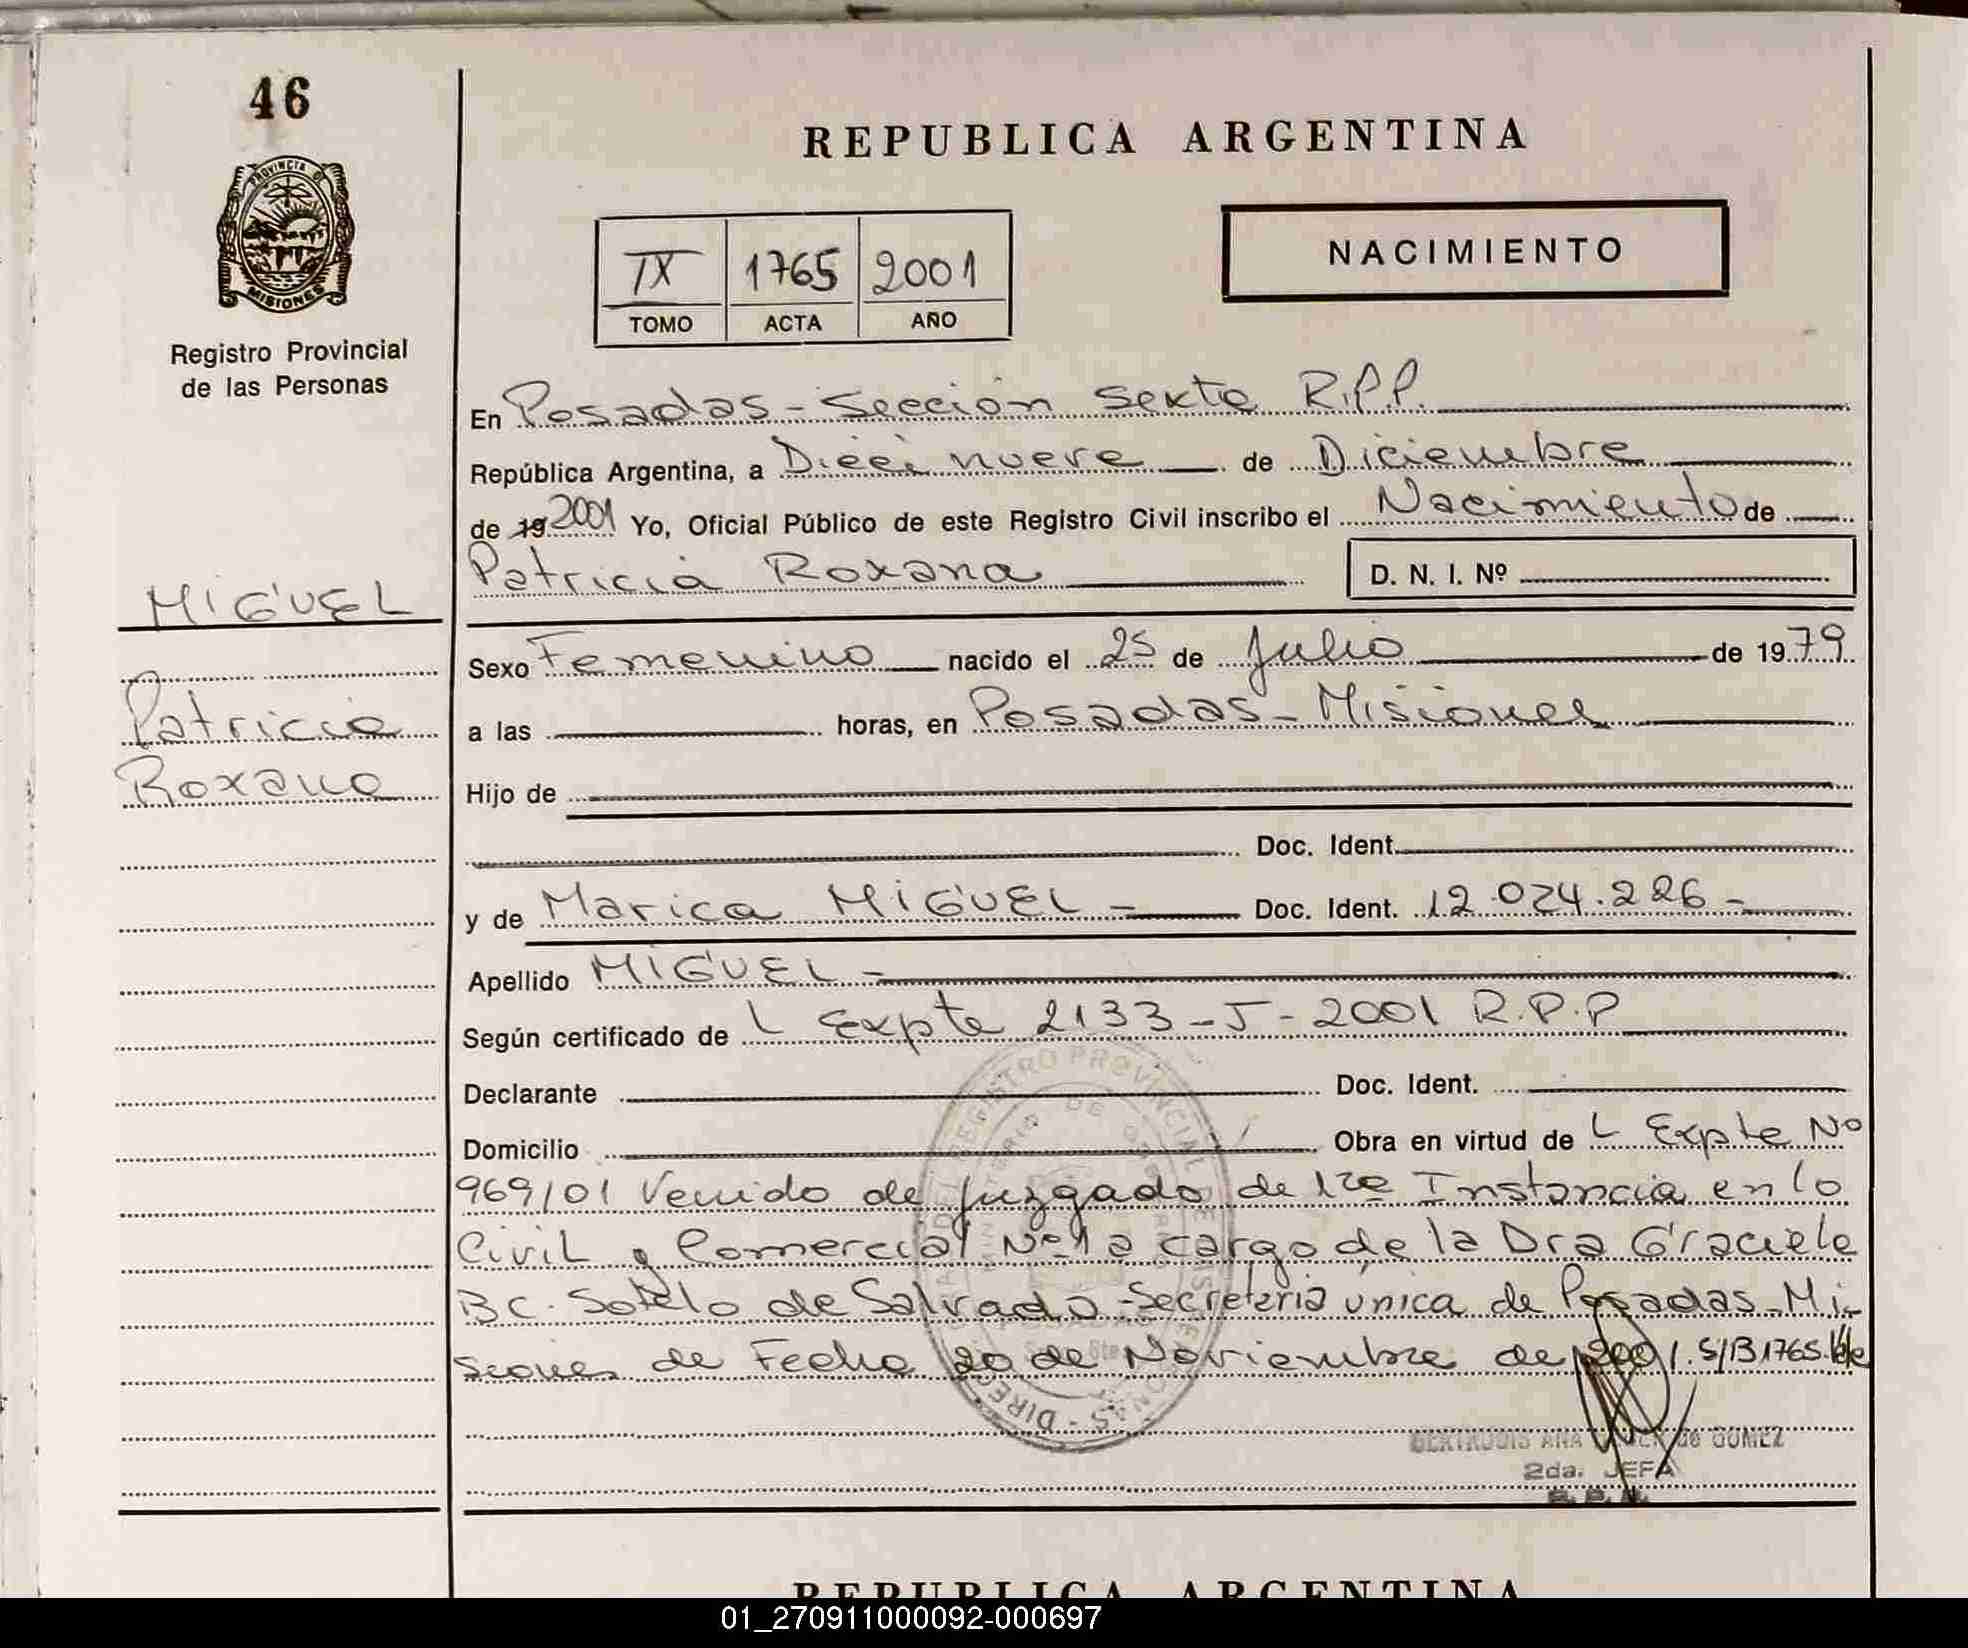 46
PROVINCIA D
MISIONES
Registro Provincial
de las Personas
MIGUEL
Patricia
Roxana
REPUBLICA ARGENTINA
IX 1765 2001
TOMO ACTA AÑO
NACIMIENTO
En Posadas - Sección Sexta R.P.P.
República Argentina, a Dieci nueve de Diciembre
de 19 2001 Yo, Oficial Público de este Registro Civil inscribo el Nacimiento de
Patricia Roxana D. N. I. Nº
Sexo Femenino nacido el 25 de Julio de 1979
a las horas, en Posadas - Misiones
Hijo de
Doc. Ident.
y de Marica MIGUEL - Doc. Ident. 12.024.226 -
Apellido MIGUEL -
Según certificado de L Expte 2133 - J - 2001 R.P.P
Declarante Doc. Ident.
Domicilio Obra en virtud de L Expte Nº
969/01 Venido de Juzgado de 1ra Instancia en lo
Civil y Comercial Nº 1 a cargo de la Dra Graciela
B C. Sotelo de Salvado - Secretaria única de Posadas - Mi-
siones de Fecha 20 de Noviembre de 2001. S/B 1765.
GERTRUDIS ANA de GOMEZ
2da. JEFA
REPUBLICA ARGENTINA
01_270911000092-000697